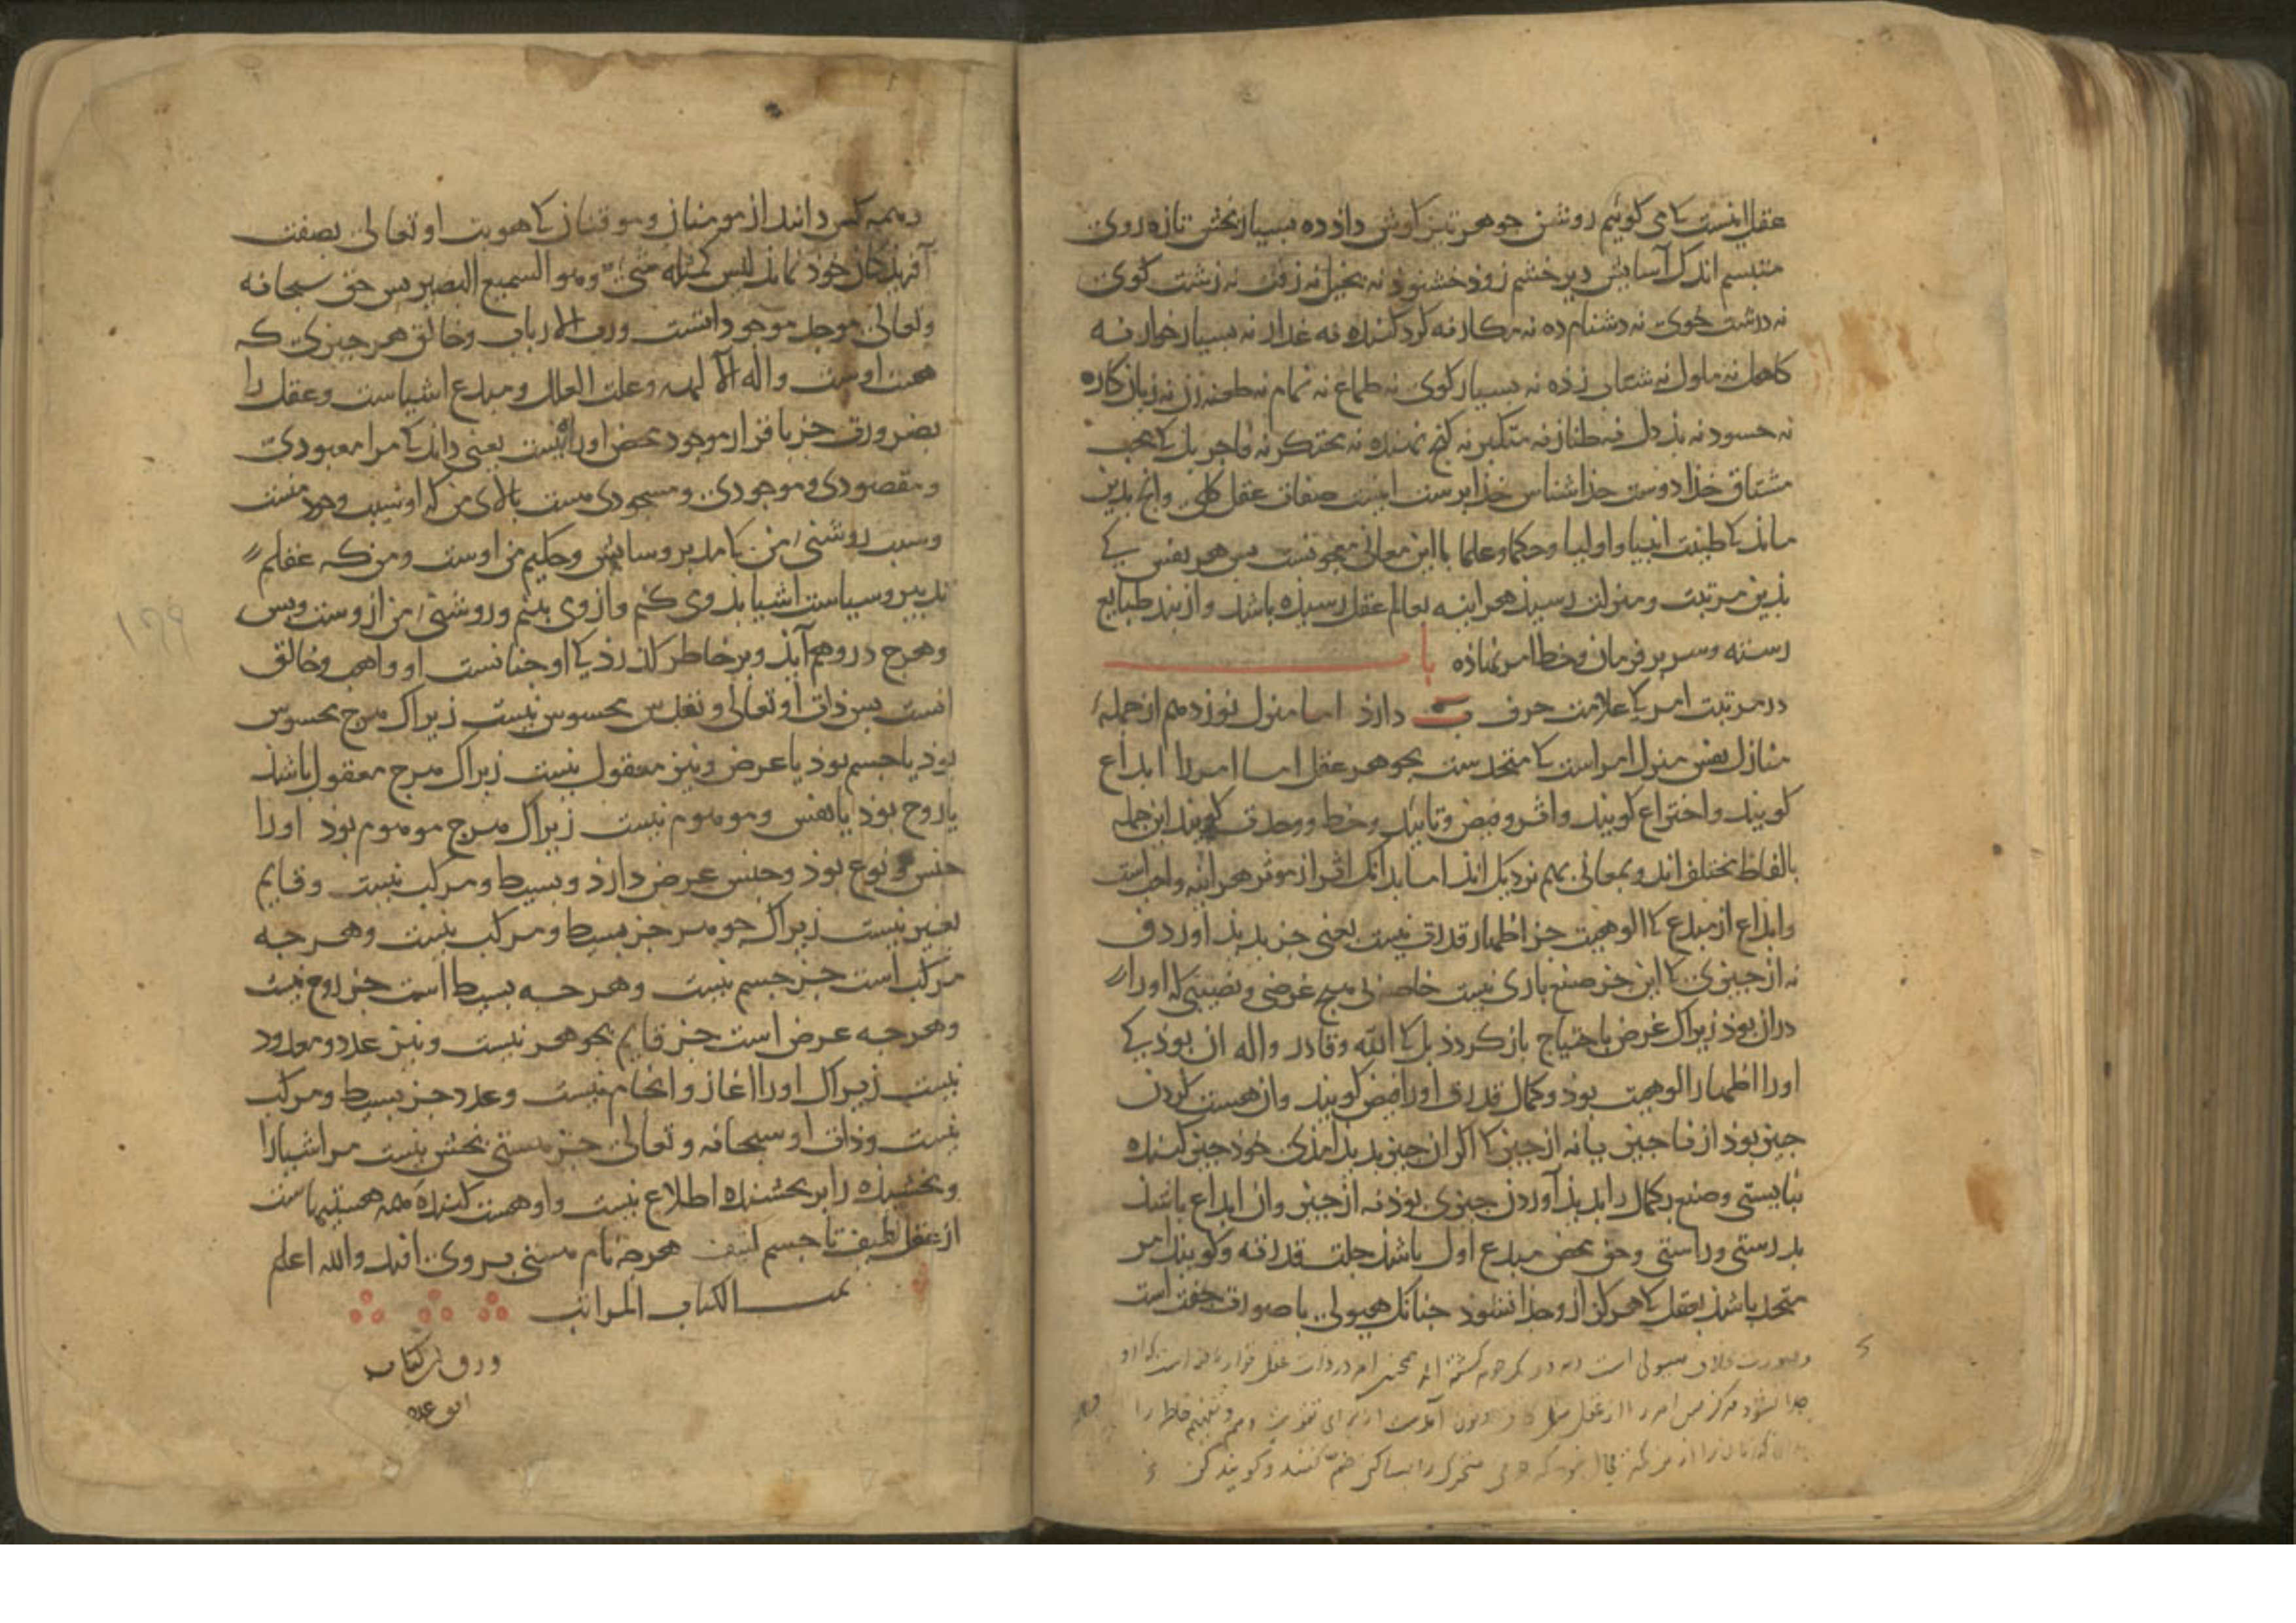 عقل اینست کی می کوئیم روشن جوهر تیز کاوش داذ ده بسیار بخش تازه روی
متبسم اندک آسایش دیر خشم زوذ خشنوذ نه بخیل نه زفت نه زشت کوی
نه درشت خوی نه دشنام ده نه مکار نه کرد کننده نه غدار نه بسیار خوار نه
کاهل نه ملول نه شتاب زده نه بسیار کوی نه طماع نه نمام نه طعنه زن نه زیان کار
نه حسود نه بذ دل نه طناز نه متکبر نه کنج نهنده نه محتکر نه فاجر بل کی محب
مشتاق خذا دوست خذا شناس خذا برست اینست صفات عقل کلی وانج بذین
ماند کی طینت انبیا و اولیا و حکما و علما با این معانی معجونست بس هر نفس کی
بذین مرتبت و منزلت رسید هر اینه بعالم عقل رسیذه باشد و از بند طبایع
رسته و سر بر فرمان و خط امر نهاذه با
در مرتبت امر کی علامت حرف دارذ اما منزل نوزدهم از جمله
منازل نفس منزل امر است کی متحد ست بجوهر عقل اما امر را ابداع
کویند و اختراع کویند و اثر و فیض و تایید و خط و وحدت کویند این جمله
بالفاظ مختلف اند و بمعانی بهم نزدیک اند اما بدانک اثر از موثر هر اینه واجب است
وابداع از مبدع کی الوهیت جز اظهار قدرت نیست یعنی جز بدید آوردن
نه از جیزی کی این جز صنع باری نیست خاصه بی هیج غرضی و نصیبی که او را
در ان بوذ زیراک غرض باحتیاج باز کردذ بل کی الله و قادر و اله ان بوذ کی
او را اظهار الوهیت بوذ و کمال قدرت او را فیض کویند وان هست کردن
جیز بوذ از نا جیز یا نه از جیز کی اکر ان جیز بدید آمذی خوذ جیز کننده
نبایستی و صنع بکمال را بدید آوردن جیزی بوذ نه از جیز وان ابداع باشد
بدرستی و راستی و حق محض مبدع اول باشد جلت قدرته و کویند امر
متحد باشذ بعقل کی هرکز از و جذا نشوذ جنانک هیولی با صورت جفت است
وصورت هیولی است همجنین امر در ذات عقل است که او
جدا نشود هرکز بس امر را از عقل خاطر را
متحرک را بساکن ضم کنند و کویند کن
و همه کس دانند از مومنان و موقنان کی هویت او تعالی بصفت
آفریذکان خوذ نماند لیس کمثله شیء وهو السمیع البصیر بس حق سبحانه
وتعالی موجد موجوداتست و رب الارباب و خالق هر جیزی که
هست اوست و اله الآلهه و علت العلل و مبدع اشیاست و عقل را
بضرورت جز باقرار موجود محض او راه نیست یعنی داند کی مرا معبودی
و مقصودی و موجودی و مسجودی هست بالای من که او سبب وجود منست
وسبب روشنی من کی مدبر و سایس و حکیم من اوست و من که عقلم
تدبیر و سیاست اشیا بدوی کنم و از وی بینم و روشنی من ازوست و بس
وهرج در وهم آیذ و بر خاطر کذرذ کی او جنانست او واهب و خالق
انست بس ذات او تعالی و تقدس محسوس نیست زیراک هرج محسوس
بوذ یا جسم بوذ یا عرض و نیز معقول نیست زیراک هرج معقول باشذ
یا روح بوذ یا نفس و موهوم نیست زیراک هرج موهوم بوذ او را
جنس و نوع بوذ و جنس عرض دارذ و بسیط و مرکب نیست و قایم
بغیر نیست زیراک جوهر جز بسیط و مرکب نیست و هر جه
مرکب است جز جسم نیست و هر جه بسیط است جز روح نیست
وهر جه عرض است جز قایم بجوهر نیست و نیز عدد و معدود
نیست زیراک او را اغاز و انجام نیست و عدد جز بسیط و مرکب
نیست وذات او سبحانه و تعالی جز هستی بخش نیست مر اشیا را
وبخشیذه را بر بخشنده اطلاع نیست و او هست کننده همه هستیهاست
از عقل لطیف تا جسم کثیف هرجه نام هستی بر وی افتد والله اعلم
تمت الکتاب المراتب
ورق از کتاب
١٦٩